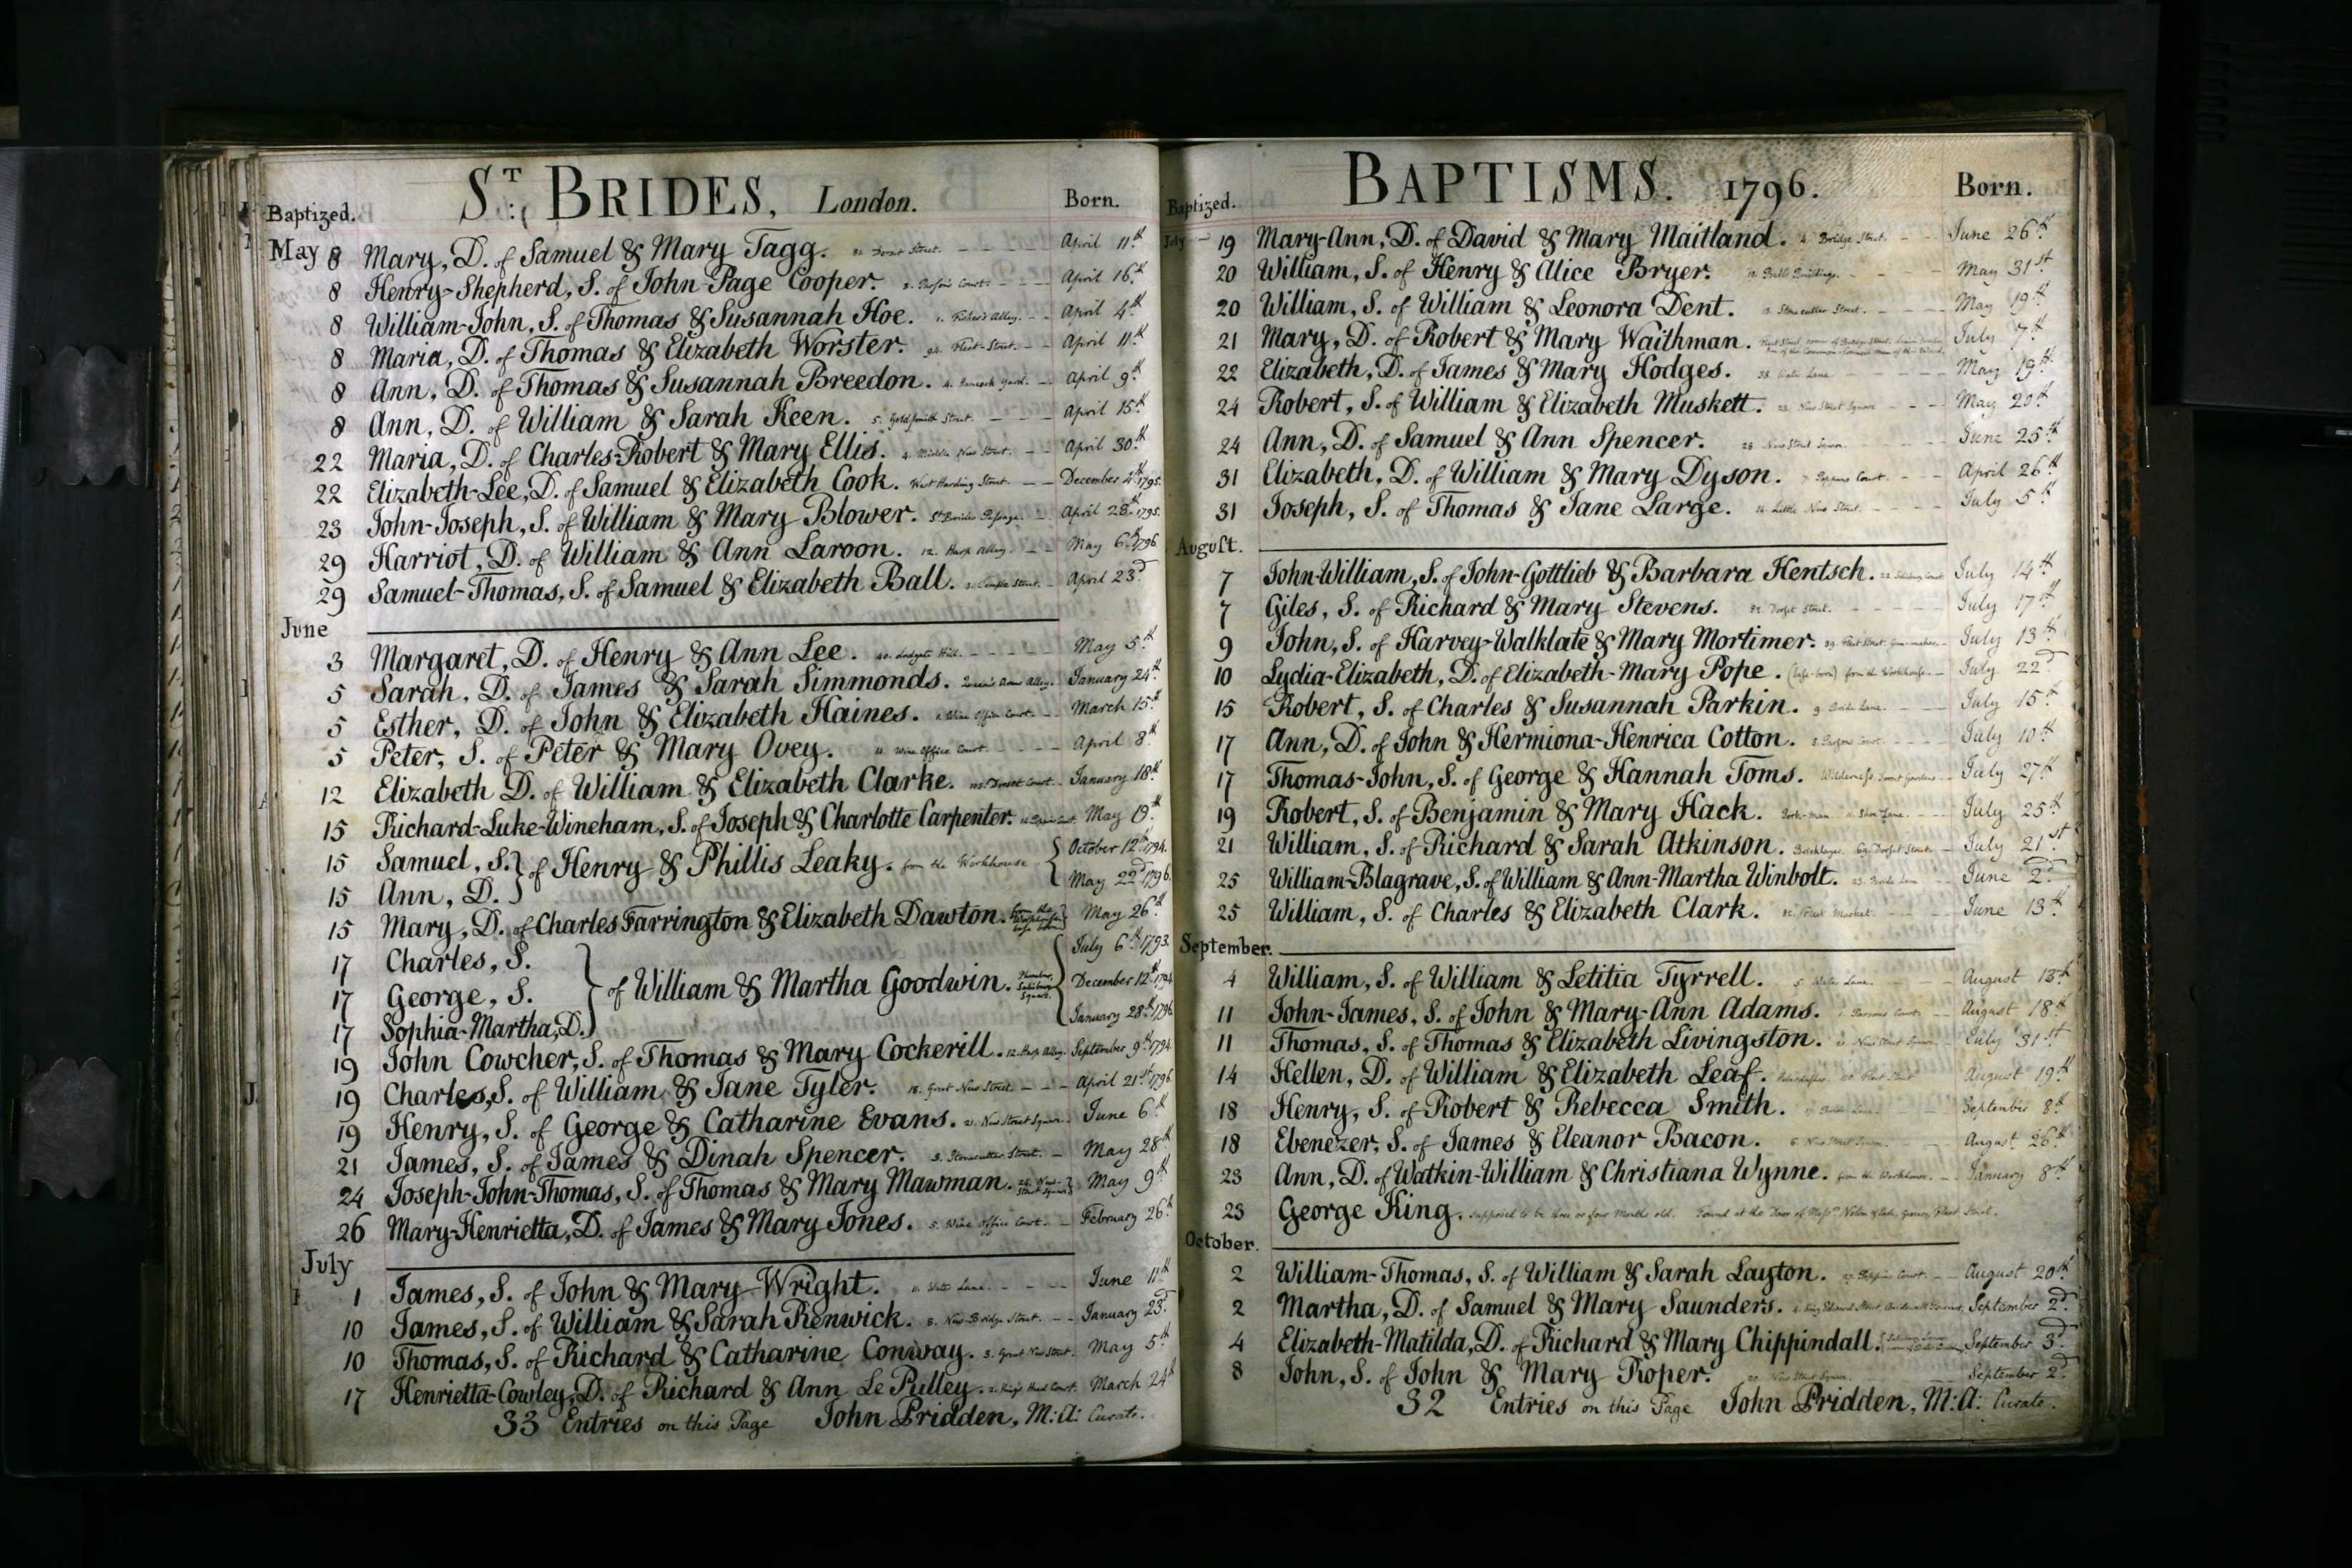 ST: BRIDES, London.
Baptized. Born.
May 8 Mary, D. of Samuel & Mary Tagg. 82. Dorset Street. April 11th
8 Henry-Shepherd, S. of John-Page Cooper. Court. April 16th
8 William-John, S. of Thomas & Susannah Hoe. Alley. April 4th
8 Maria, D. of Thomas & Elizabeth Worster. 94. Fleet-Street. April 11th
8 Ann, D. of Thomas & Susannah Breedon. 4. April 9th
8 Ann, D. of William & Sarah Keen. 5. Goldsmith Street. April 15th
22 Maria, D. of Charles-Robert & Mary Ellis. 4. Middle New Street. April 30th
22 Elizabeth-Lee, D. of Samuel & Elizabeth Cook. West Harding Street. December 4th 1795.
23 John-Joseph, S. of William & Mary Blower. St Brides Passage. April 28th 1795.
29 Harriot, D. of William & Ann Laroon. 12. Harp Alley. May 6th 1796.
29 Samuel-Thomas, S. of Samuel & Elizabeth Ball. Temple Street. April 23d
June
3 Margaret, D. of Henry & Ann Lee. 40. Ludgate Hill. May 5th
5 Sarah, D. of James & Sarah Simmonds. Queen's Arms Alley. January 24th
5 Esther, D. of John & Elizabeth Haines. 1. Wine Office Court. March 15th
5 Peter, S. of Peter & Mary Ovey. Wine Office Court. April 8th
12 Elizabeth D. of William & Elizabeth Clarke. Dorset Court. January 18th
15 Richard-Luke-Wineham, S. of Joseph & Charlotte Carpenter. May 19th
15 Samuel, S. } of Henry & Phillis Leaky. from the Workhouse { October 12th 1794.
15 Ann, D. } May 22d 1796.
15 Mary, D. of Charles Farrington & Elizabeth Dawton. from the Workhouse base born } May 26th
17 Charles, S. July 6th 1793.
17 George, S. } of William & Martha Goodwin. Plumber, Salisbury Square. { December 12th 1794
17 Sophia-Martha, D. January 28th 1796
19 John Cowcher, S. of Thomas & Mary Cockerill. 12. Harp Alley. September 9th 1794.
19 Charles, S. of William & Jane Tyler. 18. Great New Street. April 21st 1796
19 Henry, S. of George & Catharine Evans. New Street Square. June 6th
21 James, S. of James & Dinah Spencer. Stonecutter Street. May 28th
24 Joseph-John-Thomas, S. of Thomas & Mary Mawman. New Street Square } May 9th
26 Mary-Henrietta, D. of James & Mary Jones. 5. Wine Office Court. February 26th
July
1 James, S. of John & Mary Wright. Water Lane. June 11th
10 James, S. of William & Sarah Renwick. 8. New-Bridge Street. January 23d
10 Thomas, S. of Richard & Catharine Conway. 3. Great New Street. May 5th
17 Henrietta-Cowley, D. of Richard & Ann Le Pulley. King's Head Court. March 24th
33 Entries on this Page John Pridden, M:A: Curate.
BAPTISMS. 1796.
Baptized. Born.
July 19 Mary-Ann, D. of David & Mary Maitland. 4. Bridge Street. June 26th
20 William, S. of Henry & Alice Bryer. Buildings. May 31st
20 William, S. of William & Leonora Dent. 13. Stonecutter Street. May 19th
21 Mary, D. of Robert & Mary Waithman. Fleet Street, corner of Bridge Street, July 7th
one of the Common Council men of this Ward.
22 Elizabeth, D. of James & Mary Hodges. 38. Water Lane May 19th
24 Robert, S. of William & Elizabeth Muskett. New Street Square May 20th
24 Ann, D. of Samuel & Ann Spencer. 28. New Street Square June 25th
31 Elizabeth, D. of William & Mary Dyson. 7 Poppins Court. April 26th
31 Joseph, S. of Thomas & Jane Large. 14. Little New Street. July 5th
August.
7 John-William, S. of John-Gottlieb & Barbara Hentsch. 22. Salisbury Court. July 14th
7 Giles, S. of Richard & Mary Stevens. 82. Dorset Street. July 17th
9 John, S. of Harvey-Walklate & Mary Mortimer. 89. Fleet Street. Gun-maker. July 13th
10 Lydia-Elizabeth, D. of Elizabeth-Mary Pope. (base-born) from the Workhouse. July 22d
15 Robert, S. of Charles & Susannah Parkin. 9. Bride Lane. July 15th
17 Ann, D. of John & Hermiona-Henrica Cotton. Court. July 10th
17 Thomas-John, S. of George & Hannah Toms. Wilderness Dorset Gardens July 27th
19 Robert, S. of Benjamin & Mary Hack. Pork-man. Shoe Lane. July 25th
21 William, S. of Richard & Sarah Atkinson. Bricklayer. 69. Dorset Street. July 21st
25 William-Blagrave, S. of William & Ann-Martha Winbolt. 23. Bride Lane June 2d
25 William, S. of Charles & Elizabeth Clark. Fleet Market. June 13th
September.
4 William, S. of William & Letitia Tyrrell. 5. Water Lane. August 13th
11 John-James, S. of John & Mary-Ann Adams. Parsons Court. August 18th
11 Thomas, S. of Thomas & Elizabeth Livingston. New Street Square July 31st
14 Hellen, D. of William & Elizabeth Leaf. Fleet Street August 19th
18 Henry, S. of Robert & Rebecca Smith. Bride Lane. September 8th
18 Ebenezer, S. of James & Eleanor Bacon. 6. New Street Square. August 26th
23 Ann, D. of Watkin-William & Christiana Wynne. from the Workhouse. January 8th
23 George King. supposed to be three or four Months old. Found at the Door of Messrs Grocers, Fleet Street.
October.
2 William-Thomas, S. of William & Sarah Layton. 27. Poppins Court. August 20th
2 Martha, D. of Samuel & Mary Saunders. King Edward Street, Bridewell September 2d
4 Elizabeth-Matilda, D. of Richard & Mary Chippindall. Salisbury Square September 3d
8 John, S. of John & Mary Roper. New Street Square. September 2d
32 Entries on this Page John Pridden, M:A: Curate.